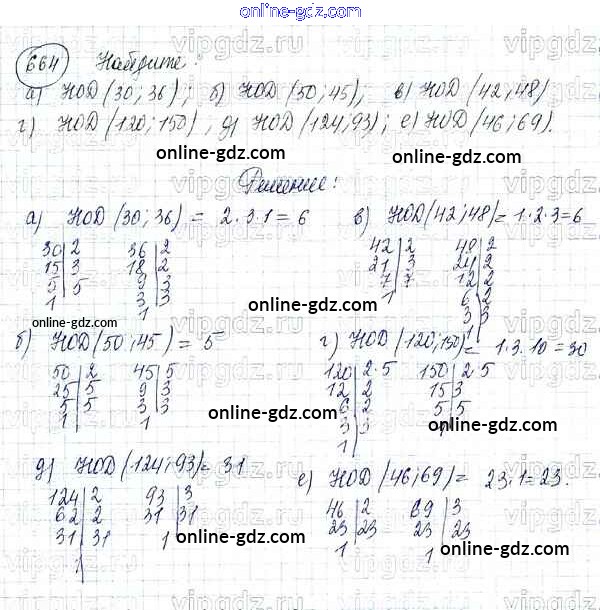 online-gdz.com
664 Найдите:
а) НОД (30; 36); б) НОД (50; 45); в) НОД (42; 48)
г) НОД (120; 150), д) НОД (124; 93); е) НОД (46; 69).
online-gdz.com online-gdz.com
Решение:
а) НОД (30; 36) = 2·3·1=6 в) НОД (42; 48) = 1·2·3=6
30|2 36|2 42|2 48|2
15|3 18|2 21|3 24|2
5|5 9|3 7|7 12|2
1 3|3 1 6|2
1 3|3
1
online-gdz.com
online-gdz.com
б) НОД (50; 45) = 5 г) НОД (120; 150) = 1·3·10=30
50|2 45|5 120|2·5 150|2·5
25|5 9|3 12|2 15|3
5|5 3|3 6|2 5|5
1 1 3|3 1
1
online-gdz.com online-gdz.com
д) НОД (124; 93) = 31 е) НОД (46; 69) = 23·1=23.
124|2 93|3 46|2 69|3
62|2 31|31 23|23 23|23
31|31 1 1 1
1
online-gdz.com online-gdz.com